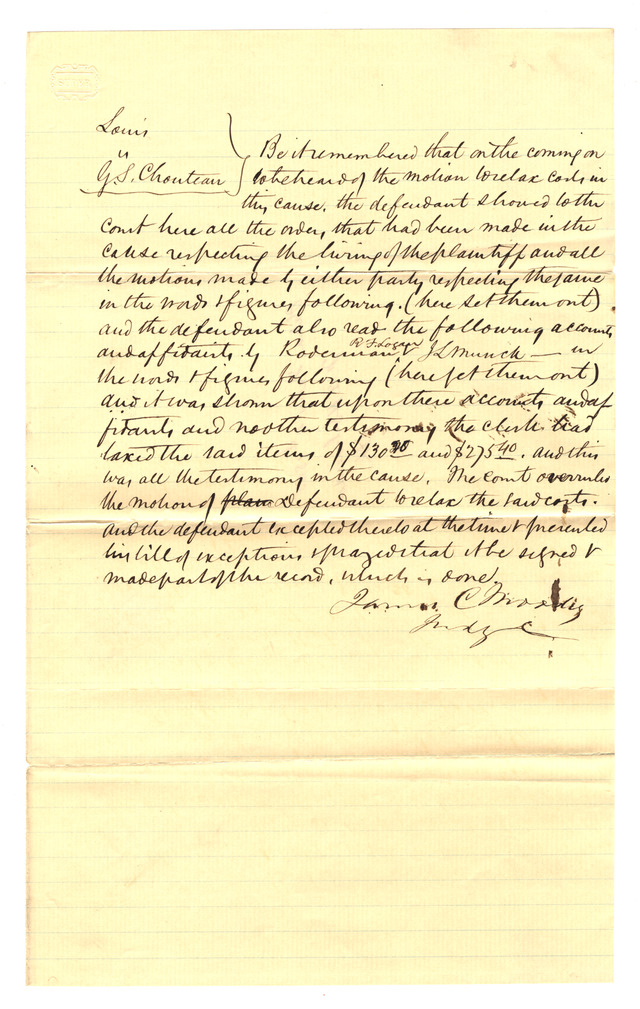 Louis
vs
G. S. Chouteau
Be it remembered that on the coming on
to be heard of the motion to retax costs in
this cause, the defendant showed to the
court here all the orders, that had been made in the
cause respecting the hiring of the plaintiff and all
the motions made by either party respecting the same
in the words & figures following. (here set them out)
and the defendant also read the following accounts
R. F. Logan
and affidavits by Roderman & J L Munch — in
the words & figures following (here set them out)
and it was shown that upon there accounts and af
fidavits and no other testimony the clerk had
taxed the said items of $130 and $275 40. and this
was all the testimony in the cause. The court overrules
the motion of plain Defendant to retax the said costs.
and the defendant excepted thereto at the time & presented
his bill of exceptions & prayed that it be signed &
made part of the record, which is done.
James C Moodey
Judge C